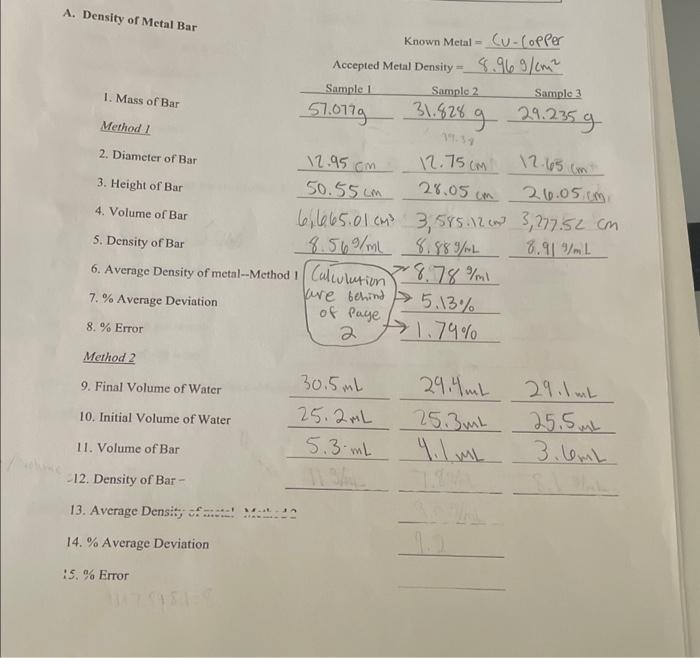 A. Density of Metal Bar
Known Metal = Cu-Copper
Accepted Metal Density = 8.96 g/cm²
Sample 1 Sample 2 Sample 3
1. Mass of Bar 57.077g 31.828 g 29.235 g
Method 1
2. Diameter of Bar 12.95 cm 12.75 cm 12.65 cm
3. Height of Bar 50.55 cm 28.05 cm 26.05 cm
4. Volume of Bar 6,665.01 cm³ 3,585.12 cm³ 3,277.52 cm
5. Density of Bar 8.56 g/mL 8.88 g/mL 8.91 g/mL
6. Average Density of metal--Method 1 Calculation 8.78 g/ml
7. % Average Deviation are behind → 5.13%
of Page
8. % Error 2 → 1.79%
Method 2
9. Final Volume of Water 30.5 mL 29.4 mL 29.1 mL
10. Initial Volume of Water 25.2 mL 25.3 mL 25.5 mL
11. Volume of Bar 5.3 mL 4.1 mL 3.6 mL
12. Density of Bar -
13. Average Density of metal
14. % Average Deviation 9.2
15. % Error